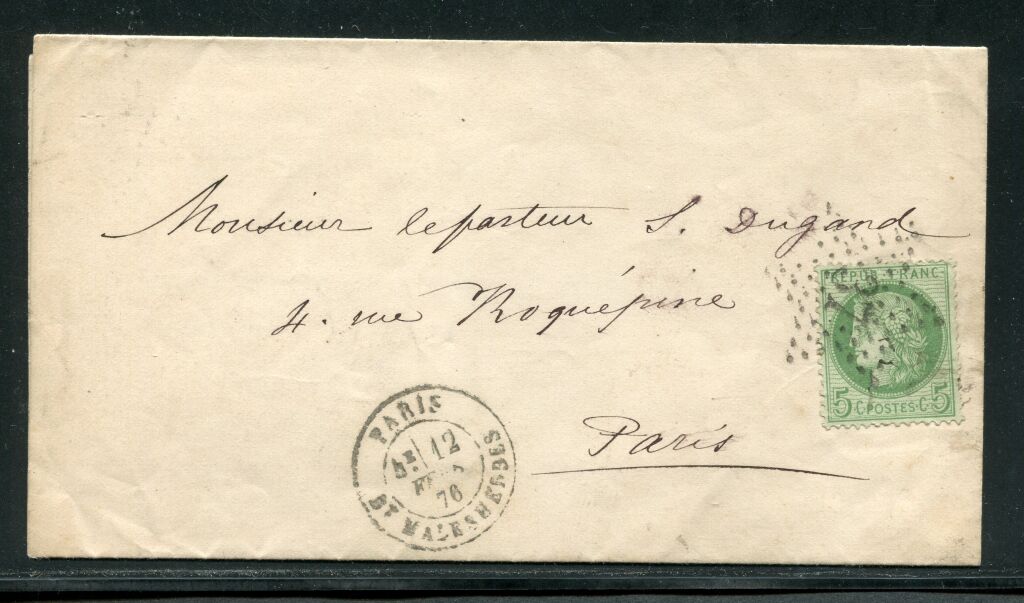 Monsieur le pasteur S. Dugand
4. rue Roquépine
Paris
REPUB. FRANC
5 C. POSTES. C. 5
PARIS
12
76
BT MALESHERBES